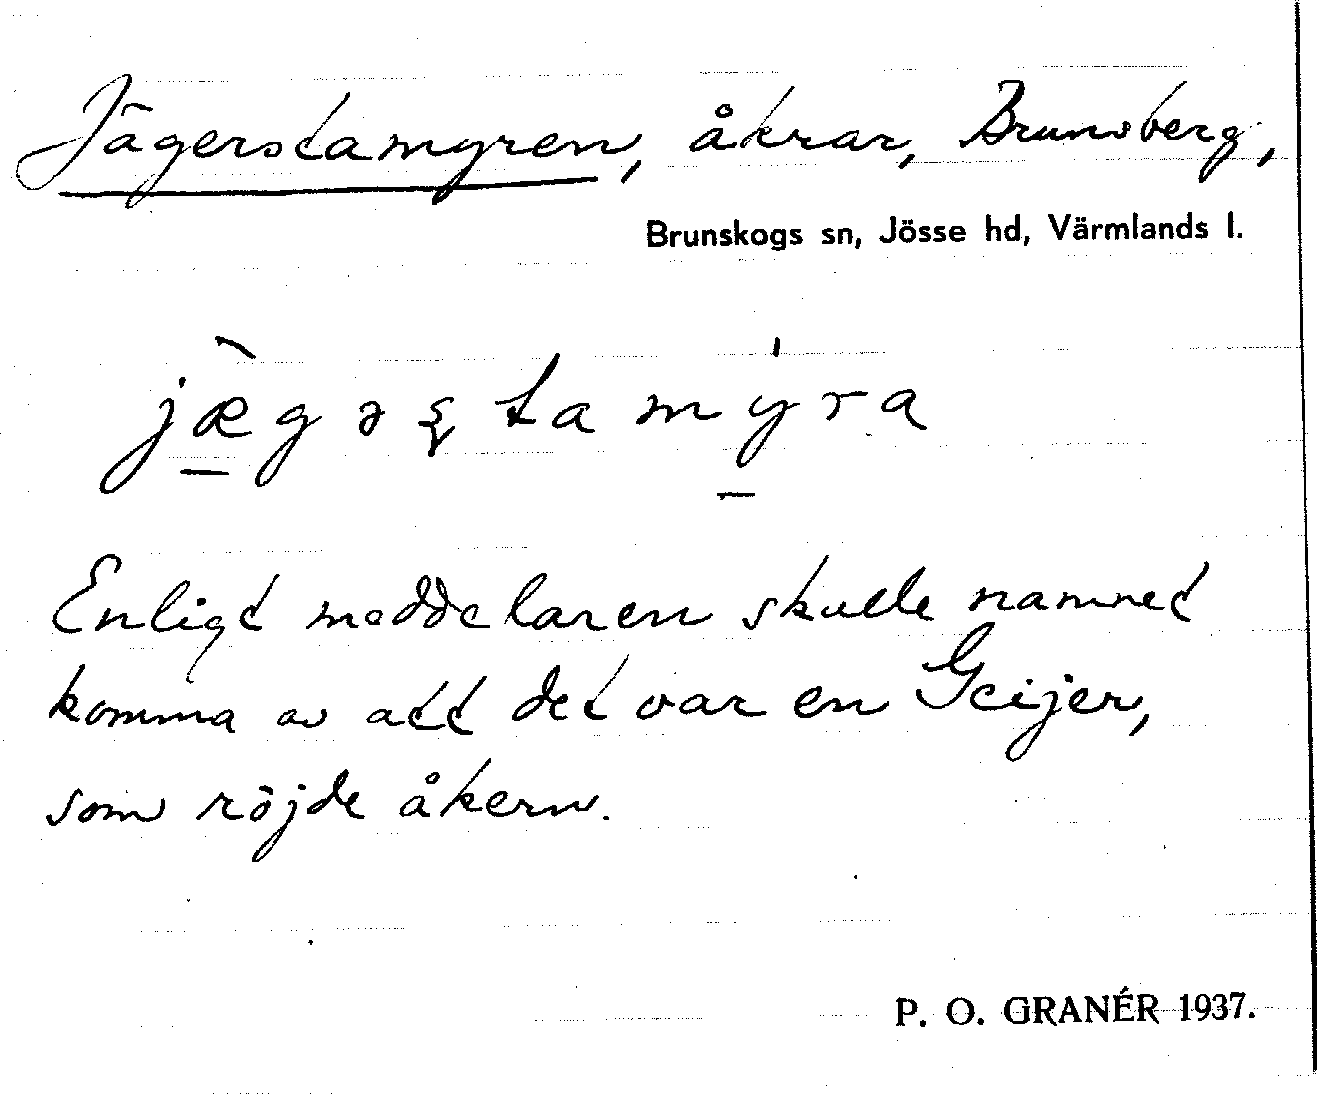 Jägerstamyren, åkrar, Brunsberg,
Brunskogs sn, Jösse hd, Värmlands l.
jæ̀gəʂtamýra
Enligt meddelaren skulle namnet
komma av att det var en Geijer,
som röjde åkern.
P. O. GRANÉR 1937.